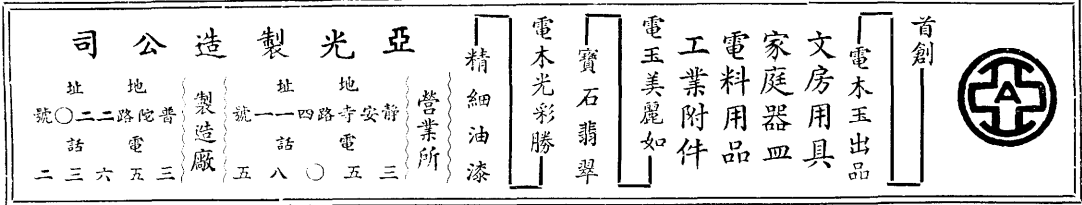 A
首創
電木玉出品
文房用具
家庭器皿
電料用品
工業附件
電玉美麗如
寶石翡翠
電木光彩勝
精細油漆
亞光製造公司
營業所
地址
靜安寺路四一一號
電話
三五〇八五
製造廠
地址
普陀路二二〇號
電話
三五六三二